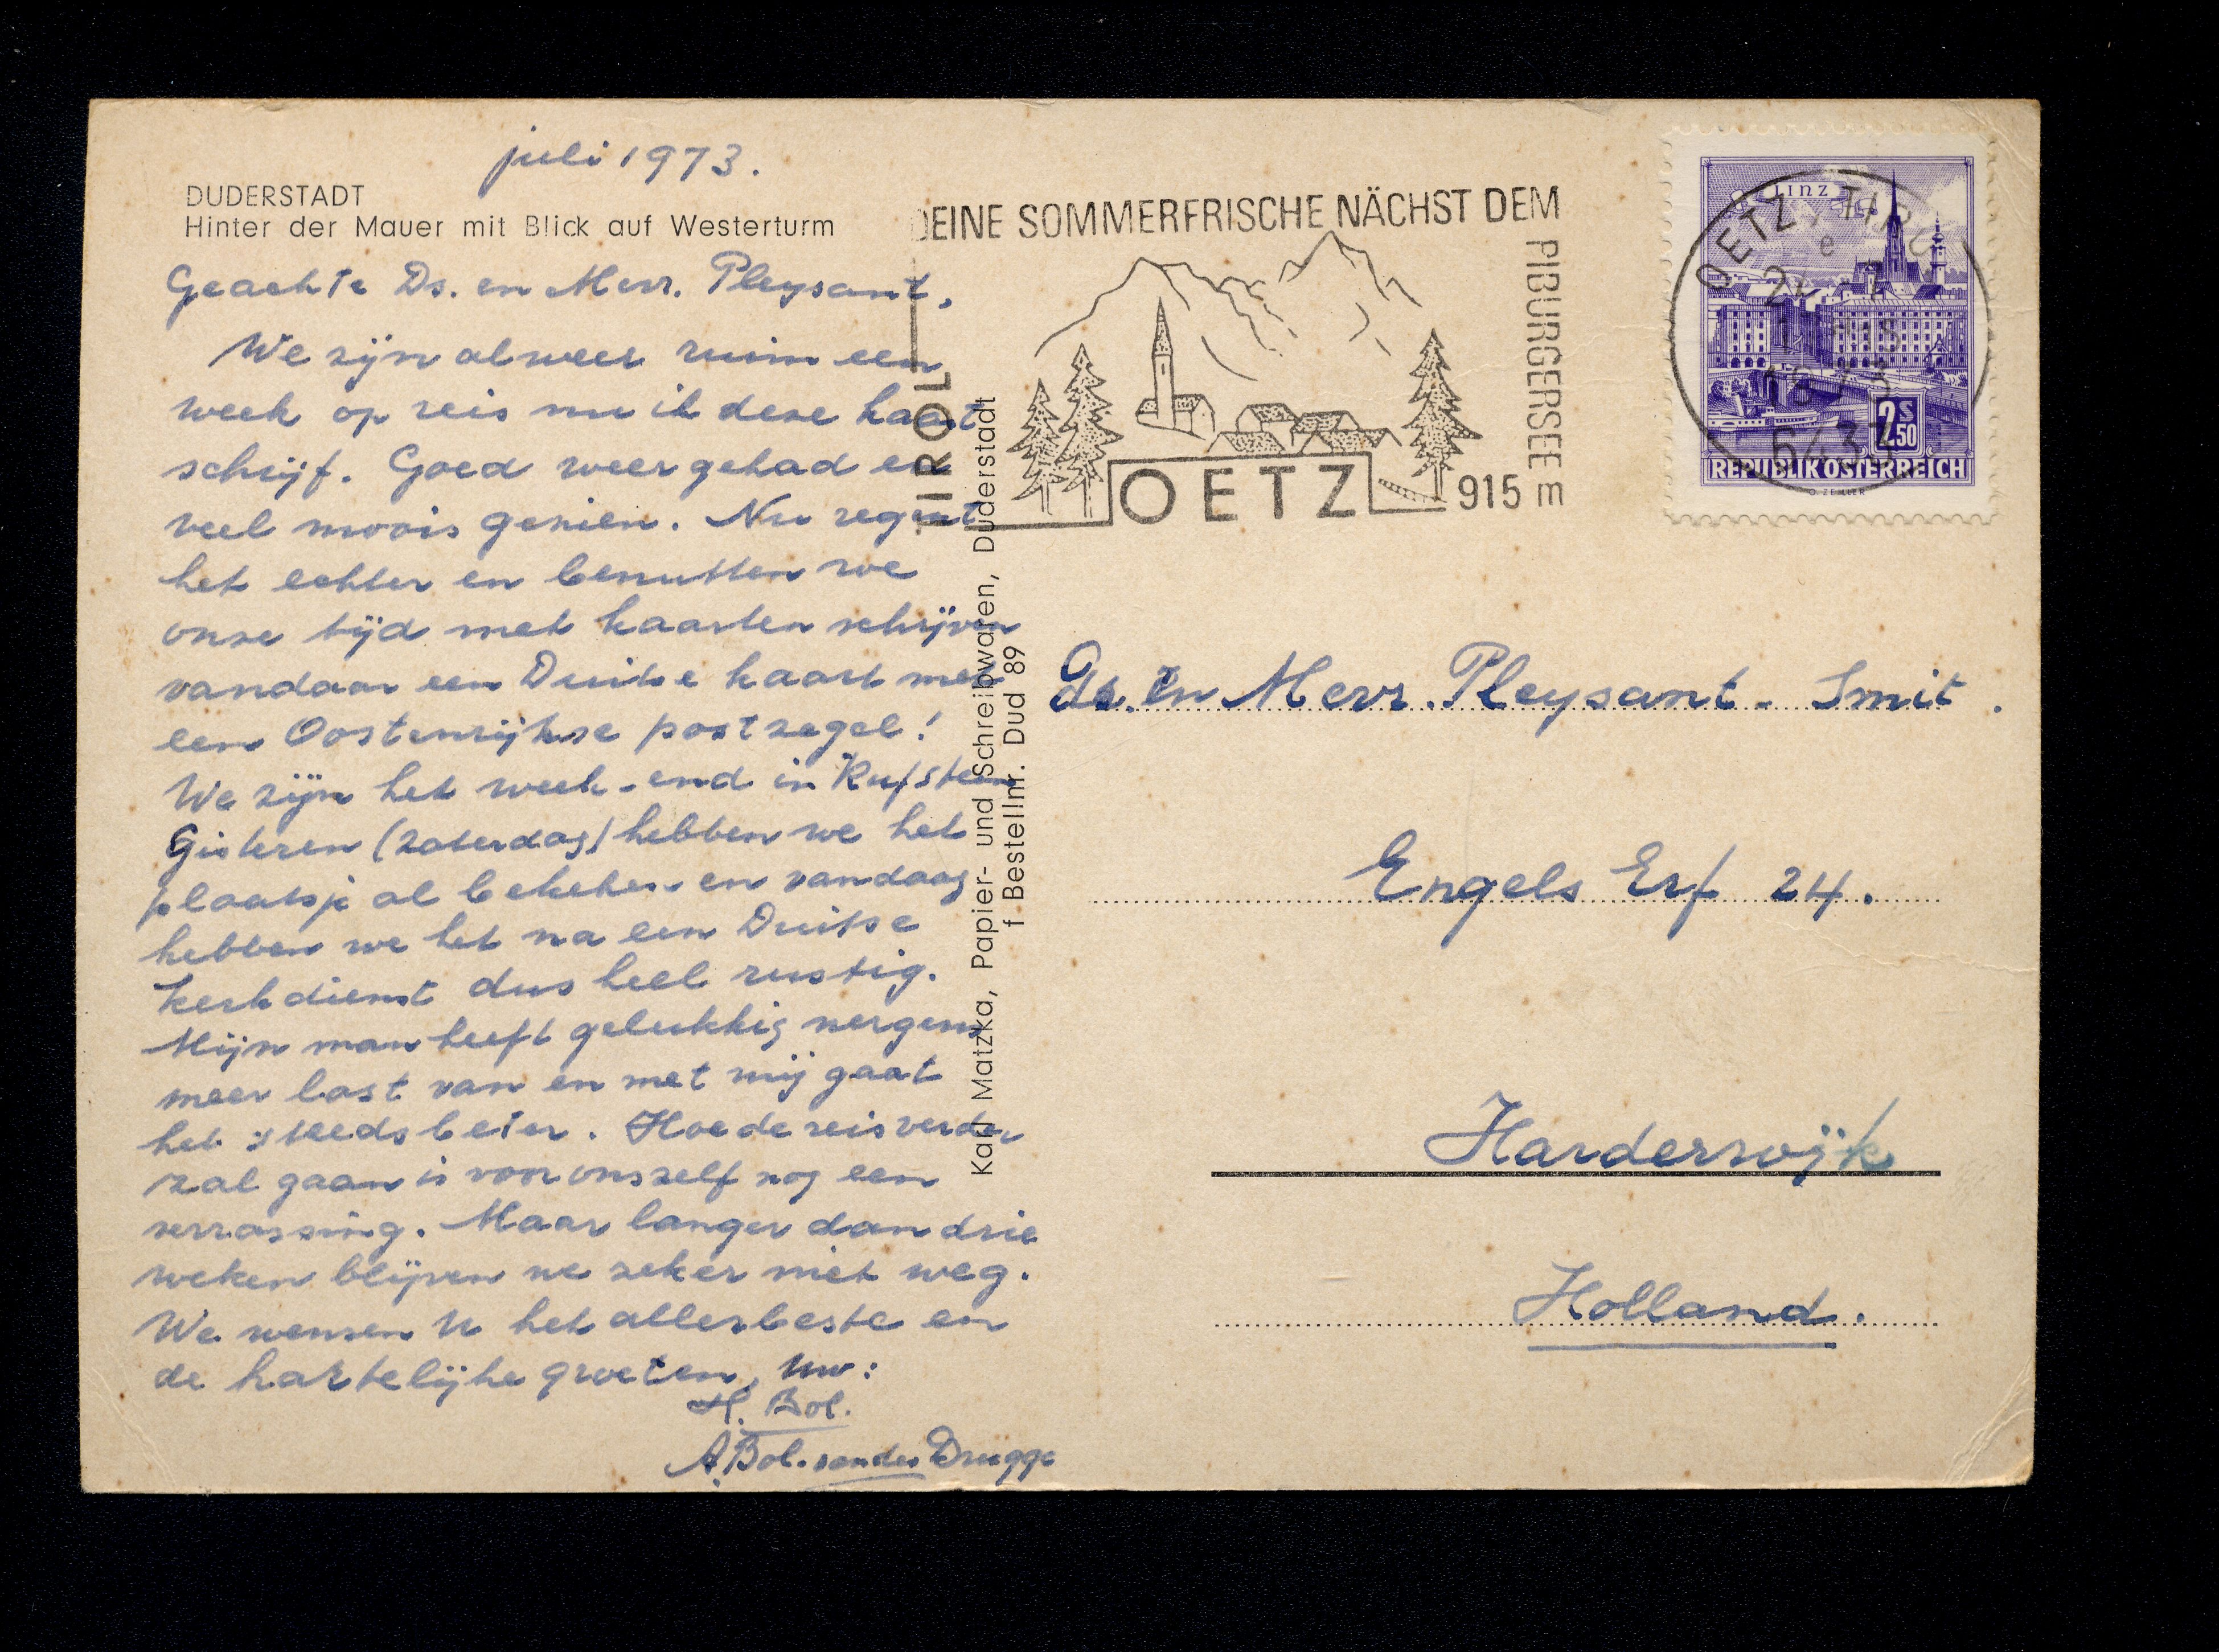 juli 1973.
DUDERSTADT
Hinter der Mauer mit Blick auf Westerturm
Geachte Ds. en Mevr. Pleysant,
We zijn alweer ruim een
week op reis nu ik deze kaart
schrijf. Goed weer gehad en
veel moois gezien. Nu regent
het echter en benutten we
onze tijd met kaarten schrijven
vandaar een Duitse kaart met
een Oostenrijkse postzegel!
We zijn het week-end in Kufstein
Gisteren (zaterdag) hebben we het
plaatsje al bekeken en vandaag
hebben we het na een Duitse
kerkdienst dus heel rustig.
Mijn man heeft gelukkig nergens
meer last van en met mij gaat
het steeds beter. Hoe de reis verder
zal gaan is voor onszelf nog een
verrassing. Maar langer dan drie
weken blijven we zeker niet weg.
We wensen U het allerbeste en
de hartelijke groeten, Uw:
H. Bol.
A. Bol. van der Brugge
Karl Matzka, Papier- und Schreibwaren, Duderstadt
f Bestellnr. Dud 89
DEINE SOMMERFRISCHE NÄCHST DEM
PIBURGERSEE
TIROL
OETZ
915 m
LINZ
OETZ, TIROL
e
6433
2 S 50
REPUBLIK ÖSTERREICH
Ds. En Mevr. Pleysant - Smit.
Engels Erf 24.
Harderwijk
Holland.